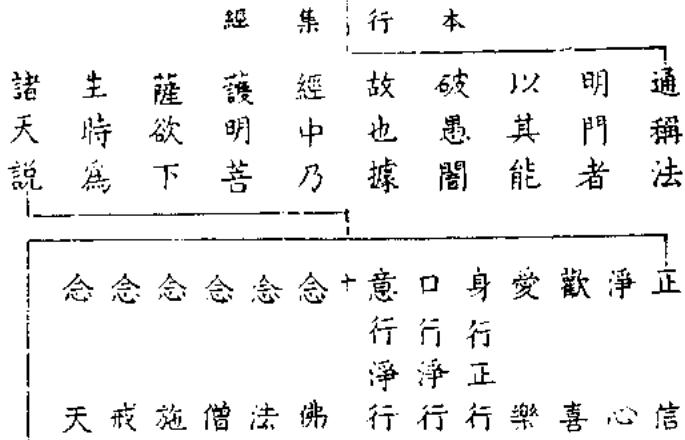 本行集經
通稱法
明門者
以其能
破愚闇
故也據
經中乃
護明菩
薩欲下
生時為
諸天説
正信
淨心
歡喜
愛樂
身行正行
口行淨行
意行淨行
十
念佛
念法
念僧
念施
念戒
念天